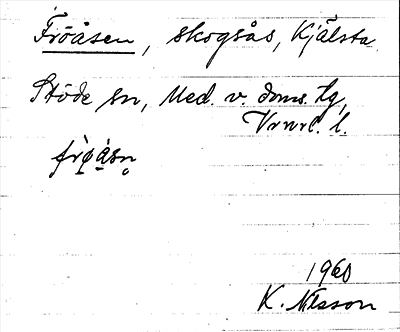 Fröåsen, skogsås, Kjälsta
Stöde sn, Med. v. doms. tg,
Vnrl. l.
frø̀ásn̥
1960
K. Nilsson